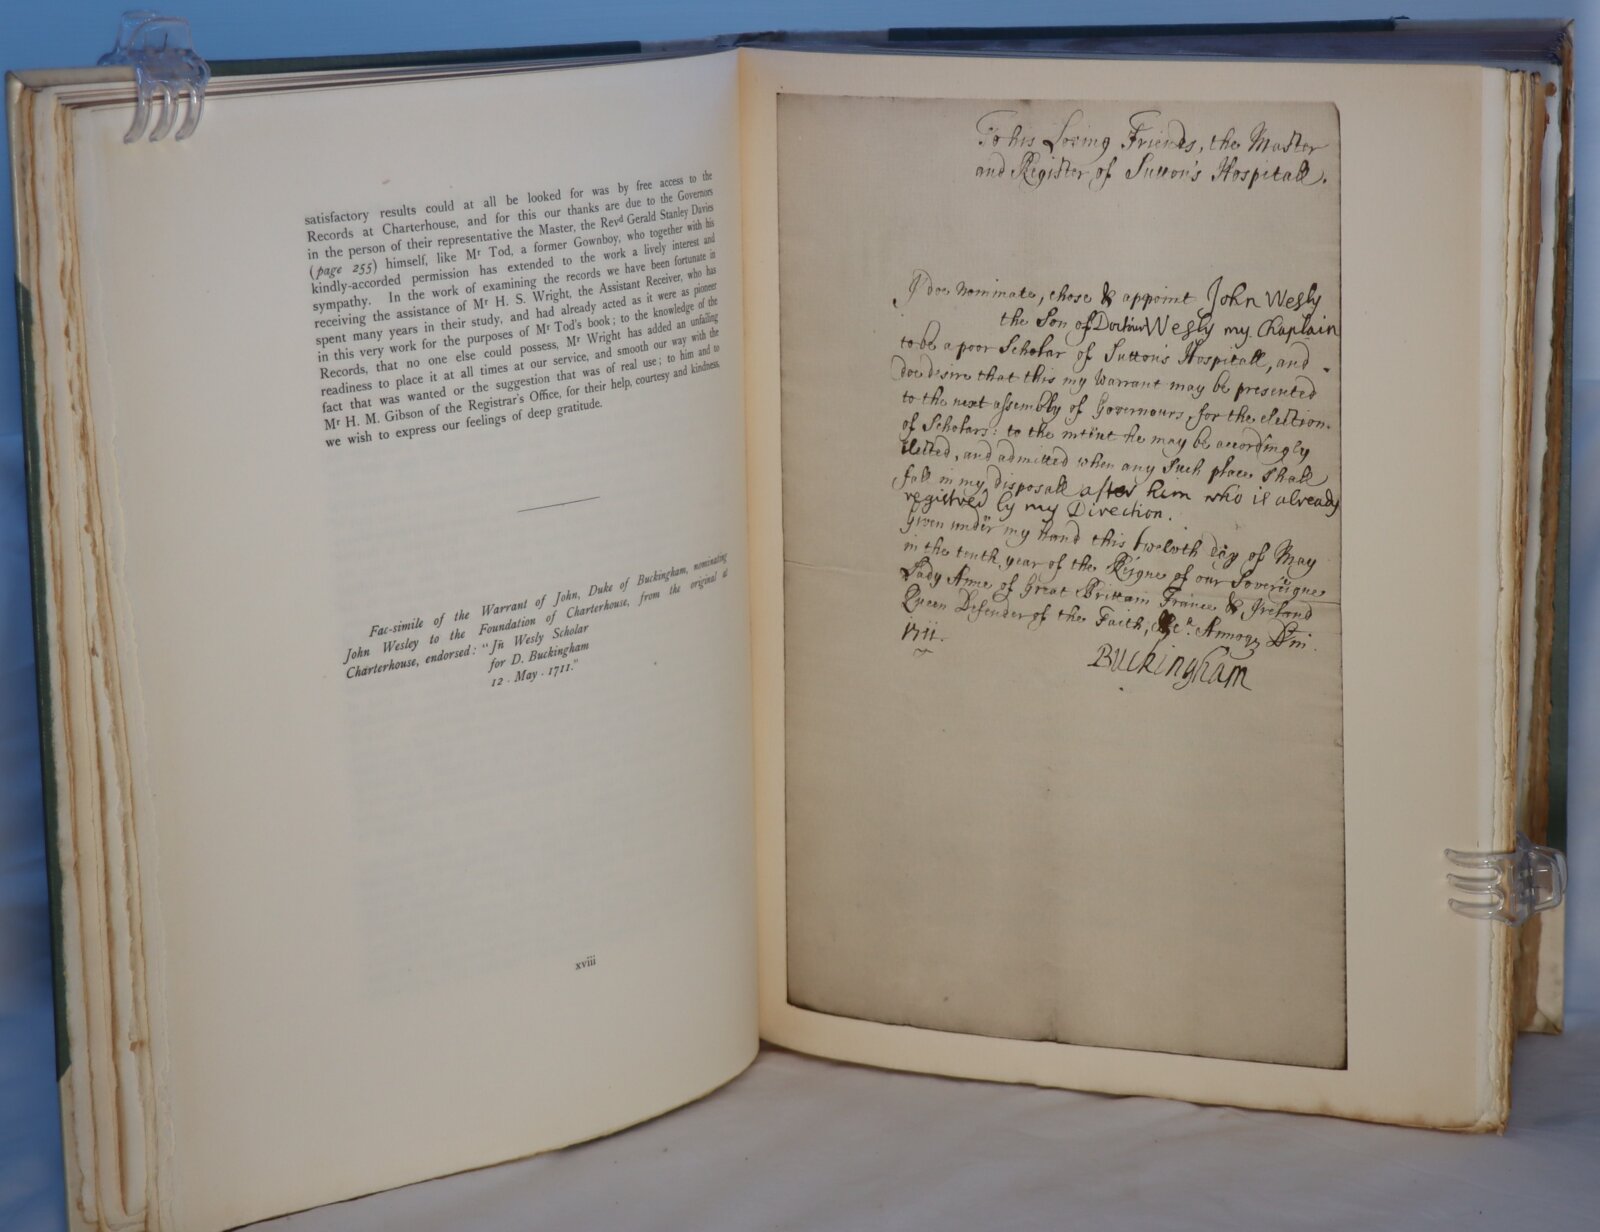 satisfactory results could at all be looked for was by free access to the
Records at Charterhouse, and for this our thanks are due to the Governors
in the person of their representative the Master, the Revd Gerald Stanley Davies
(page 255) himself, like Mr Tod, a former Gownboy, who together with his
kindly-accorded permission has extended to the work a lively interest and
sympathy. In the work of examining the records we have been fortunate in
receiving the assistance of Mr H. S. Wright, the Assistant Receiver, who has
spent many years in their study, and had already acted as it were as pioneer
in this very work for the purposes of Mr Tod's book; to the knowledge of the
Records, that no one else could possess, Mr Wright has added an unfailing
readiness to place it at all times at our service, and smooth our way with the
fact that was wanted or the suggestion that was of real use; to him and to
Mr H. M. Gibson of the Registrar's Office, for their help, courtesy and kindness,
we wish to express our feelings of deep gratitude.
Fac-simile of the Warrant of John, Duke of Buckingham, nominating
John Wesley to the Foundation of Charterhouse, from the original at
Charterhouse, endorsed: "Jn̄ Wesly Scholar
for D. Buckingham
12 . May . 1711."
xviii
To his Loving Friends, the Master
and Register of Sutton's Hospitall.
I doe nominate, chose & appoint John Wesly
the Son of Doctour Wesly my Chaplain
to be a poor Scholar of Sutton's Hospitall, and
doe desire that this my Warrant may be presented
to the next assembly of Governours, for the election
of Scholars: to the intent he may be accordingly
elected, and admitted when any Such place Shall
fall in my disposall after him who is already
registred by my Direction.
Given under my Hand this twelvth day of May
in the tenth year of the Reigne of our Sovereigne
Lady Anne of Great Brittain France & Ireland
Queen Defender of the Faith, Annoq Dni.
1711.
Buckingham